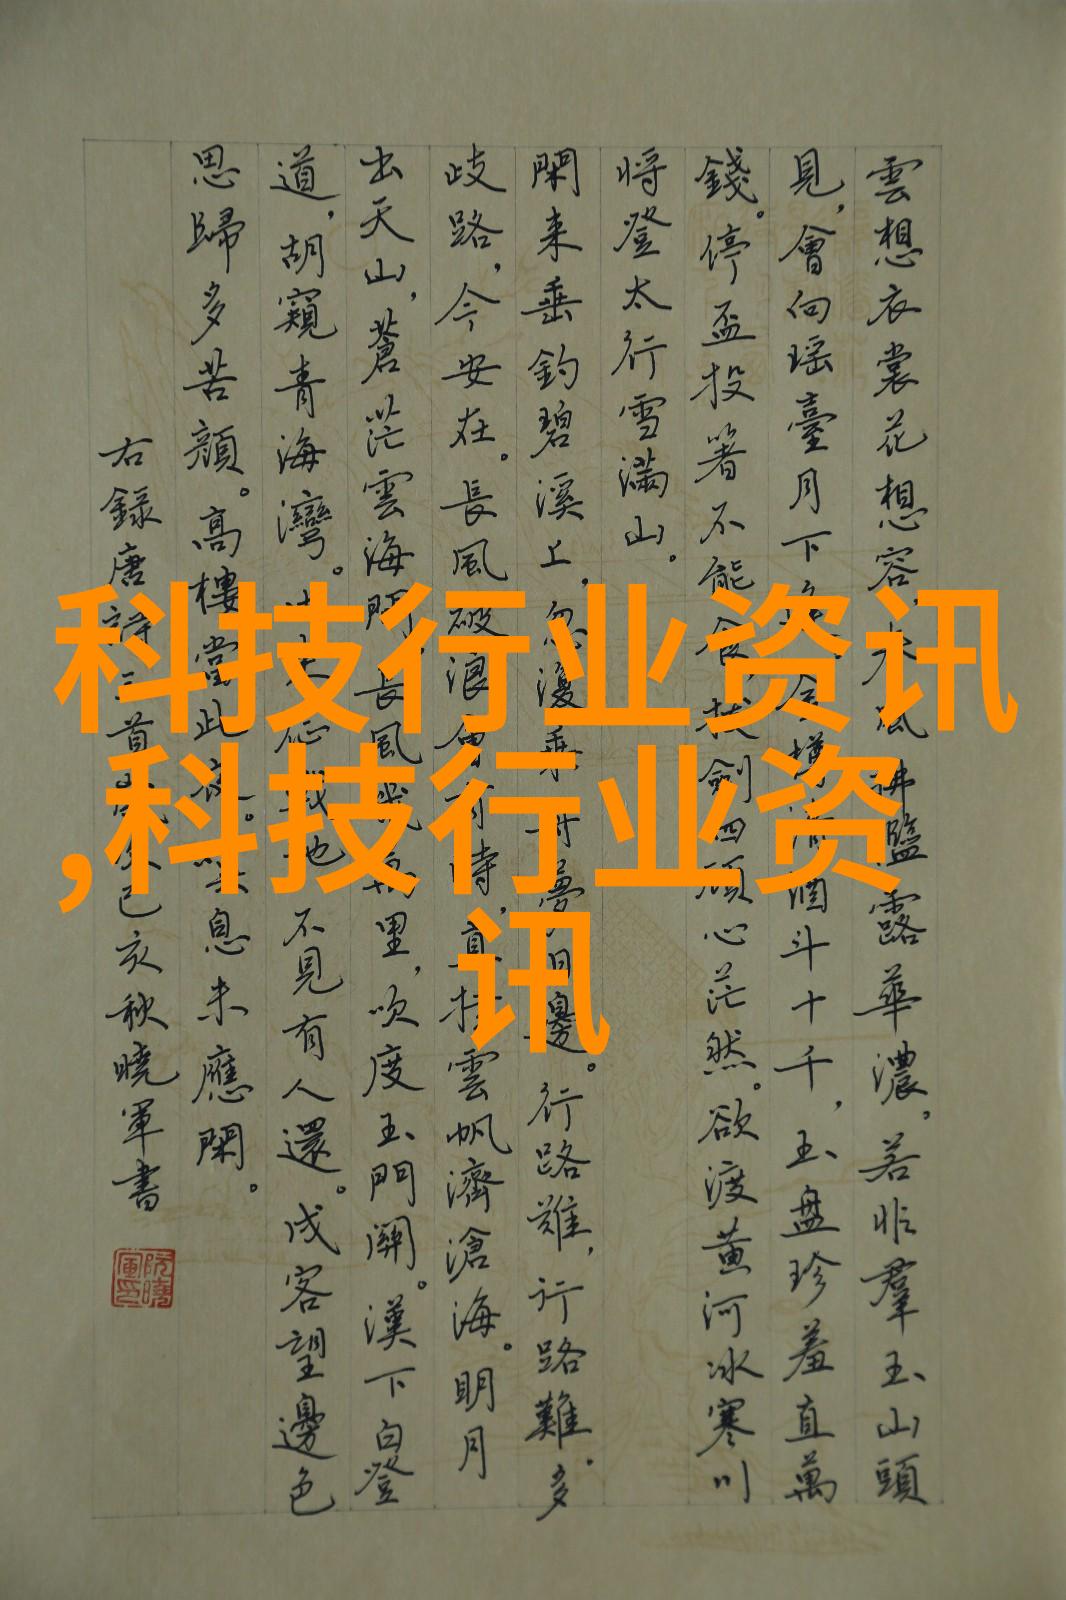 雲想衣裳花想容，春風拂檻露華濃。若非羣玉山頭
見，會向瑶臺月下逢。金樽清酒斗十千，玉盤珍羞直萬
錢。停盃投箸不能食，拔劍四顧心茫然。欲渡黄河冰寒川
将登太行雪滿山。
閑来垂釣碧溪上，忽復乘舟夢日邊。行路難，行路難。多
歧路，今安在。長風破浪會有時，直挂雲帆濟滄海。明月
出天山，蒼茫雲海間。長風幾萬里，吹度玉門關。漢下白登
道，胡窺青海灣。由来征戰地，不見有人還。戍客望邊色
思歸多苦顔。高樓當此夜。嘆息未應閑。
右録唐詩三首歲次己亥秋曉軍書
阮曉軍印
科技行业资讯
,科技行业资
讯